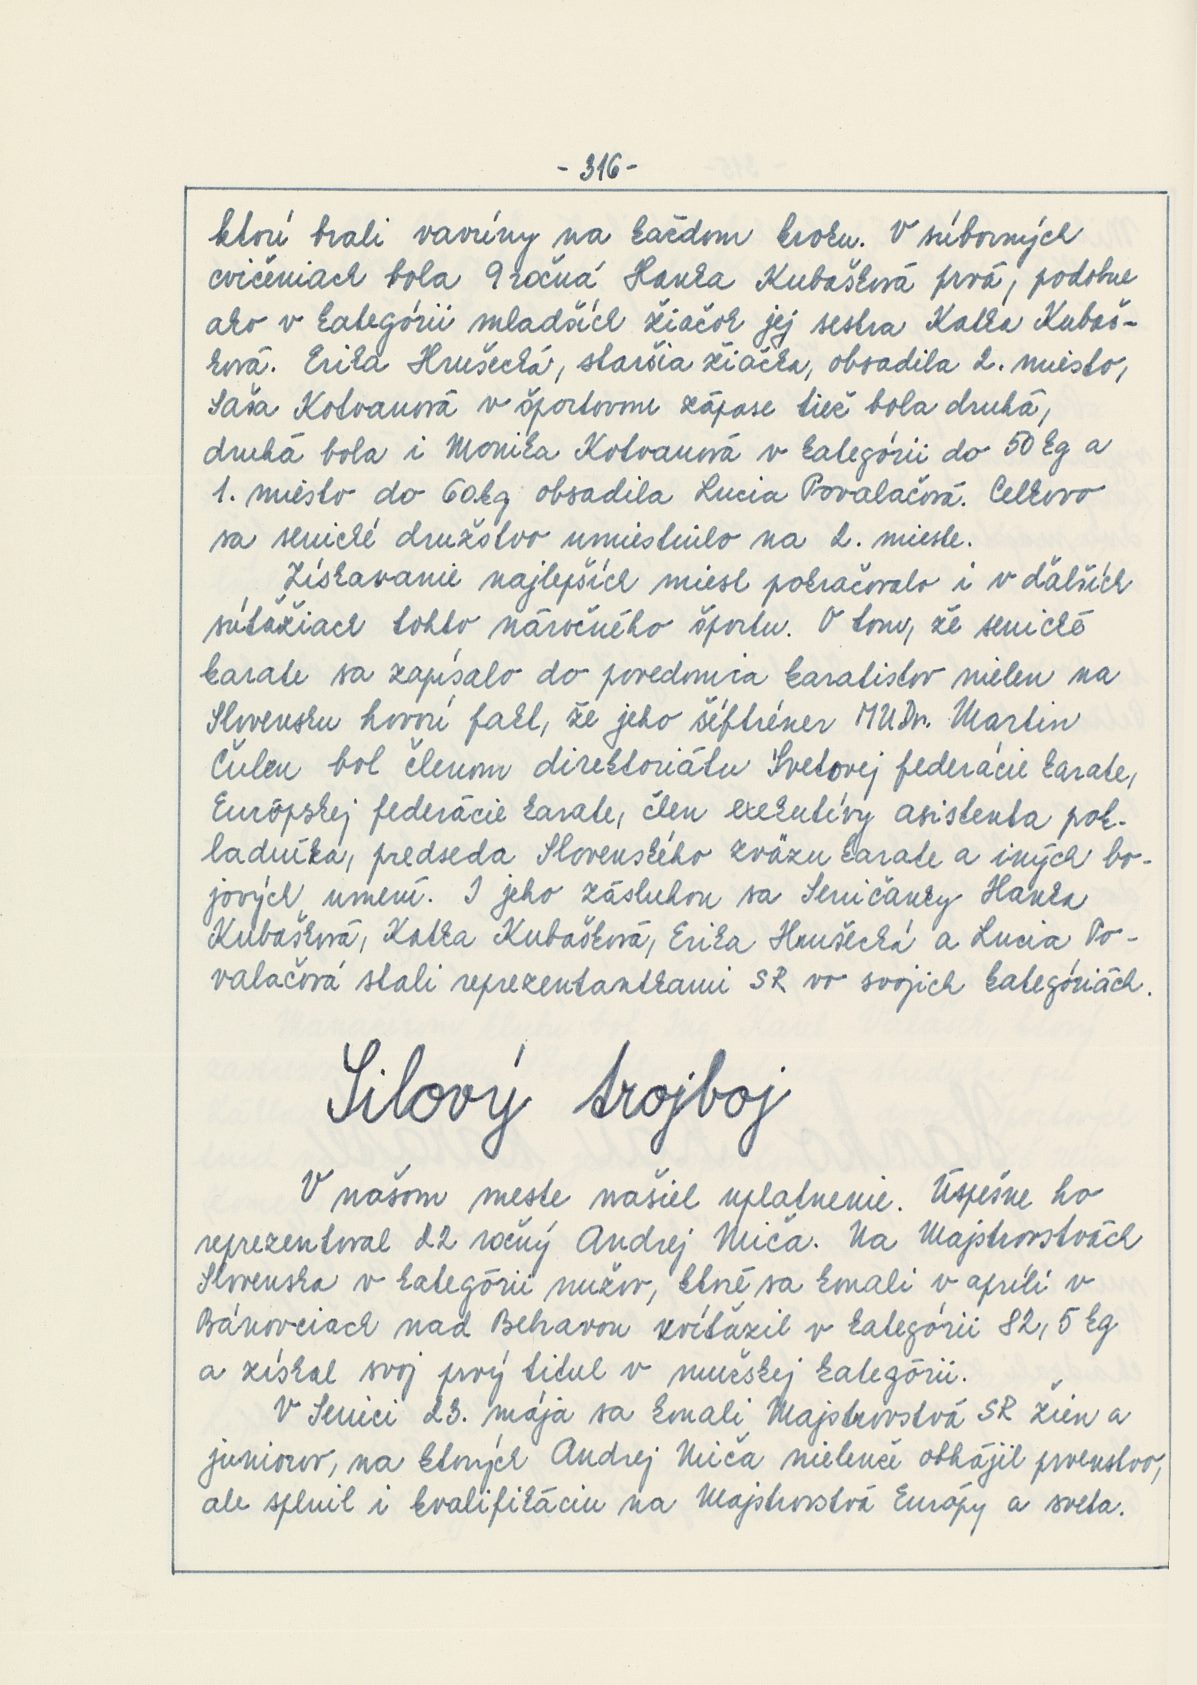 - 316 -
ktorí brali vavríny na každom kroku. V súborných
cvičeniach bola 9 ročná Hanka Kubašková prvá, podobne
ako v kategórii mladších žiačok jej sestra Katka Kubaš-
ková. Erika Hrušecká, staršia žiačka, obsadila 2. miesto,
Saša Kotvanová v športovom zápase tiež bola druhá,
druhá bola i Monika Kotvanová v kategórii do 50 kg a
1. miesto do 60 kg obsadila Lucia Povalačová. Celkovo
sa senické družstvo umiestnilo na 2. mieste.
Získavanie najlepších miest pokračovalo i v ďalších
súťažiach tohto náročného športu. O tom, že senické
karate sa zapísalo do povedomia karatistov nielen na
Slovensku hovorí fakt, že jeho šéftréner MUDr. Martin
Čulen bol členom direktoriátu Svetovej federácie karate,
Európskej federácie karate, člen exekutívy asistenta pok-
ladníka, predseda Slovenského zväzu karate a iných bo-
jových umení. I jeho zásluhou sa Seničanky Hanka
Kubašková, Katka Kubašková, Erika Hrušecká a Lucia Po-
valačová stali reprezentantkami SR vo svojich kategóriách.
Silový trojboj
V našom meste našiel uplatnenie. Úspešne ho
reprezentoval 22 ročný Andrej Miča. Na Majstrovstvách
Slovenska v kategórii mužov, ktoré sa konali v apríli v
Bánovciach nad Bebravou zvíťazil v kategórii 82,5 kg
a získal svoj prvý titul v mužskej kategórii.
V Senici 23. mája sa konali Majstrovstvá SR žien a
juniorov, na ktorých Andrej Miča nielenže obhájil prvenstvo,
ale splnil i kvalifikáciu na Majstrovstvá Európy a sveta.